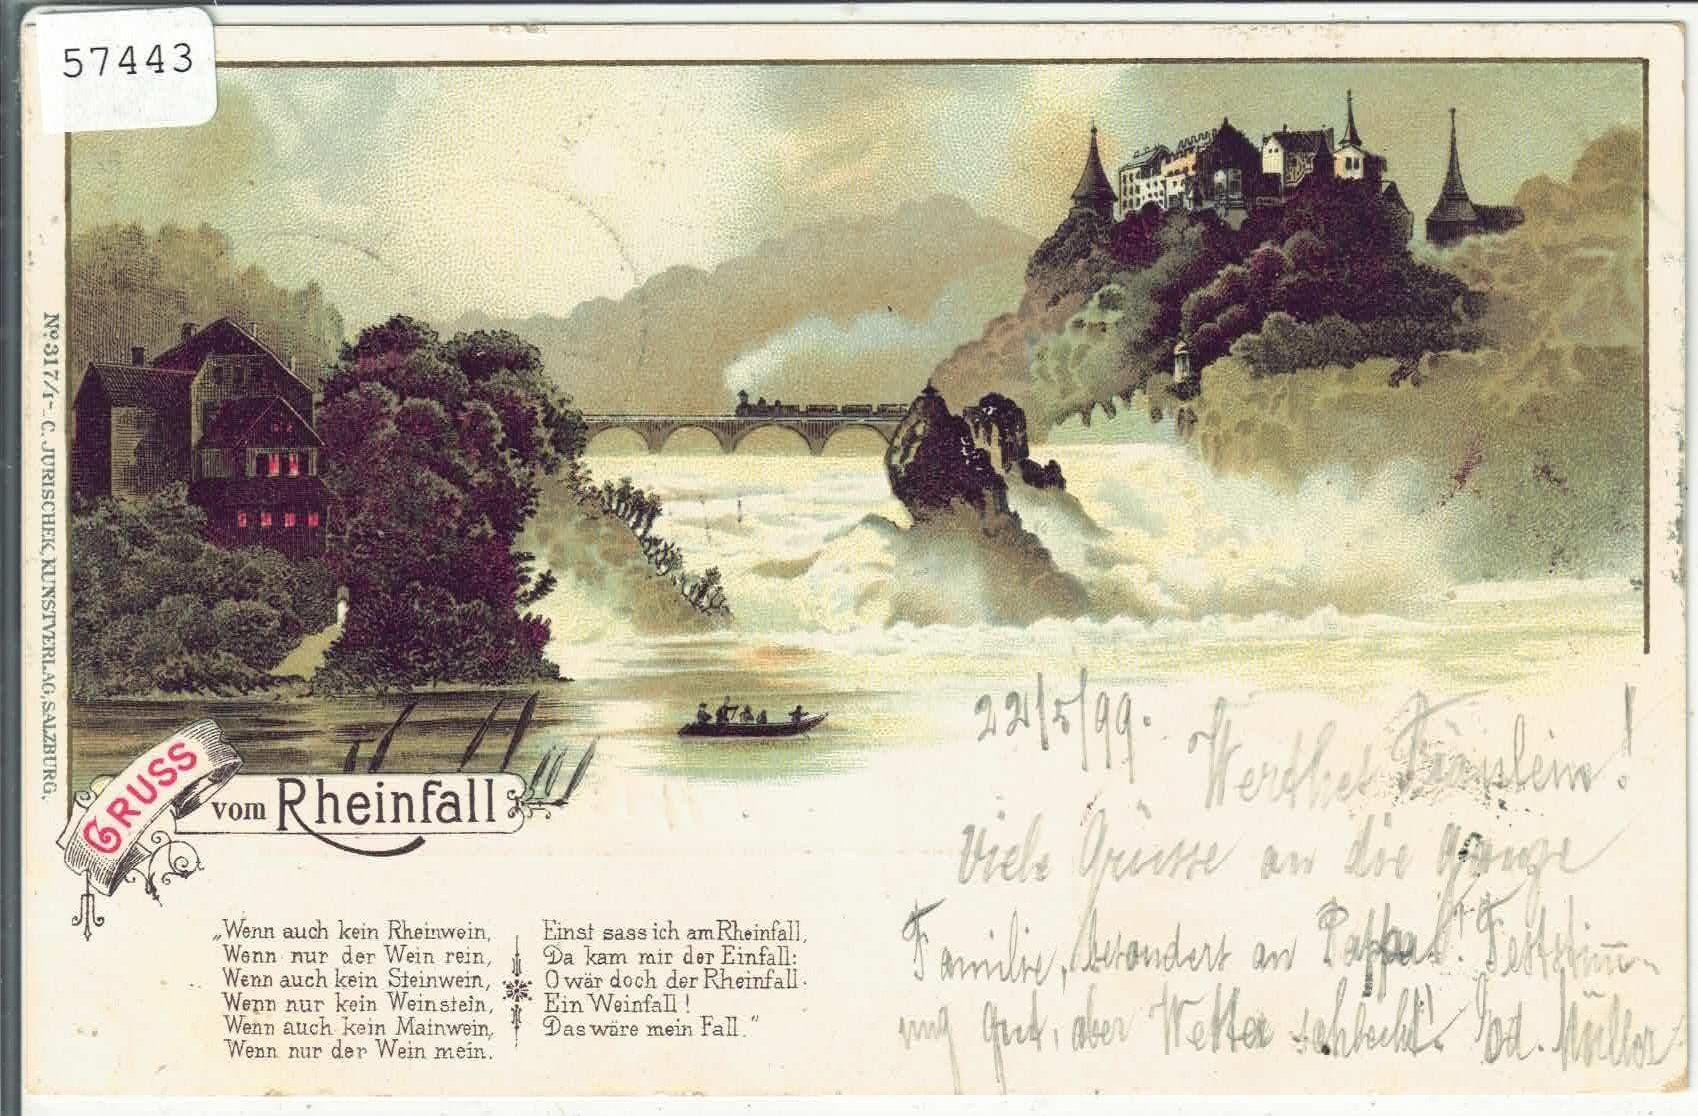 57443
No. 317/1 - C. JURISCHEK, KUNSTVERLAG, SALZBURG.
GRUSS
vom Rheinfall
„Wenn auch kein Rheinwein,
Wenn nur der Wein rein,
Wenn auch kein Steinwein,
Wenn nur kein Weinstein,
Wenn auch kein Mainwein,
Wenn nur der Wein mein.
Einst sass ich am Rheinfall,
Da kam mir der Einfall:
O wär doch der Rheinfall
Ein Weinfall!
Das wäre mein Fall."
22/5/99.
Werthes Fräulein!
Viele Grüsse an die ganze
Familie, besonders an Pappa! Feststimm-
ung gut, aber Wetter schlecht! Müller